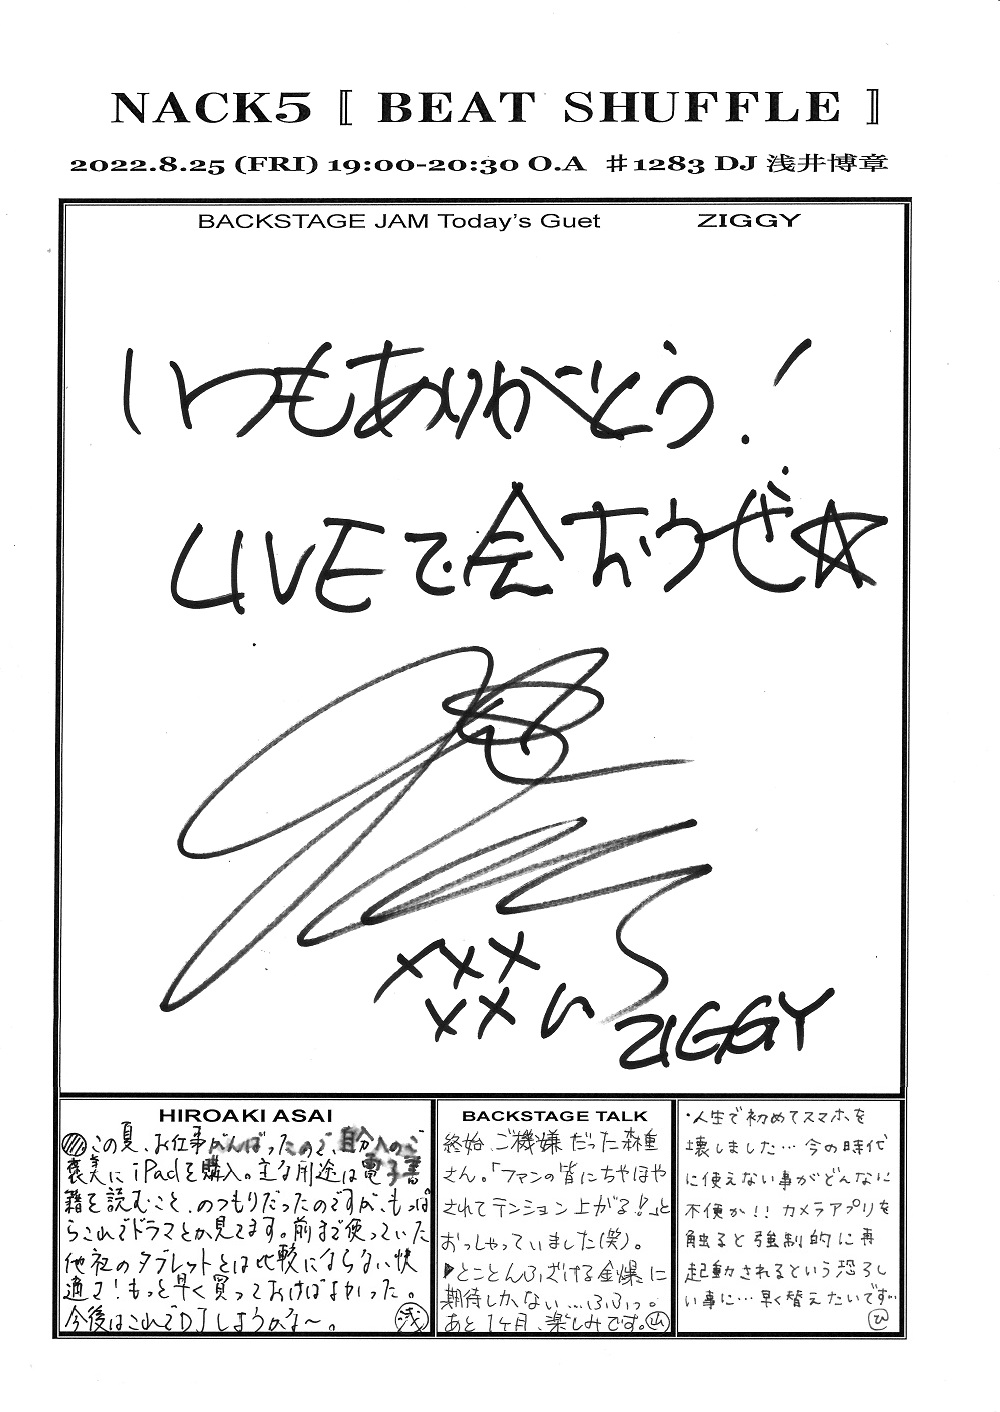 NACK5 〚 BEAT SHUFFLE 〛
2022.8.25 (FRI) 19:00-20:30 O.A ♯1283 DJ 浅井博章
BACKSTAGE JAM Today's Guet ZIGGY
いつもありがとう!
LIVEで会おうぜ☆
×××
××い ZIGGY
HIROAKI ASAI
この夏、お仕事がんばったので、自分へのご
褒美に iPadを購入。主な用途は電子書
籍を読むこと、のつもりだったのですが、もっぱ
らこれでドラマとか見てます。前まで使っていた
他社のタブレットとは比較にならない快
適さ!もっと早く買っておけばよかった。
今後はこれでDJしようかな〜。 浅
BACKSTAGE TALK
終始、ご機嫌だった森重
さん。「ファンの皆にちやほや
されてテンション上がる!」と
おっしゃっていました(笑)。
▶とことんふざける金爆に
期待しかない…ふふっ。
あと1ヶ月、楽しみです。山
・人生で初めてスマホを
壊しました…今の時代
に使えない事がどんなに
不便か!! カメラアプリを
触ると強制的に再
起動されるという恐ろし
い事に…早く替えたいです…
ひ